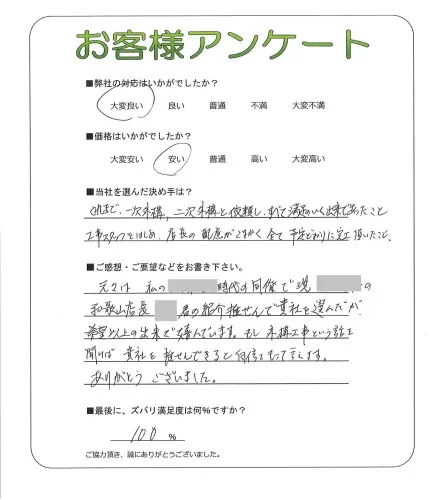 お客様アンケート
■弊社の対応はいかがでしたか?
大変良い 良い 普通 不満 大変不満
■価格はいかがでしたか?
大変安い 安い 普通 高い 大変高い
■当社を選んだ決め手は?
これまで、一次外構、二次外構と依頼し、すべて満足のいく出来であったこと
工事スタッフをはじめ、店長の配慮がこまやかく全て予定どおりに完工頂いたこと。
■ご感想・ご要望などをお書き下さい。
元々は 私の 時代の同僚で現 の
和歌山店長 君の紹介推せんで貴社を選んだが
希望以上の出来で喜んでいます。もし外構工事という話を
聞けば貴社を推せんできると自信をもって言えます。
ありがとうございました。
■最後に、ズバリ満足度は何%ですか?
100 %
ご協力頂き、誠にありがとうございました。